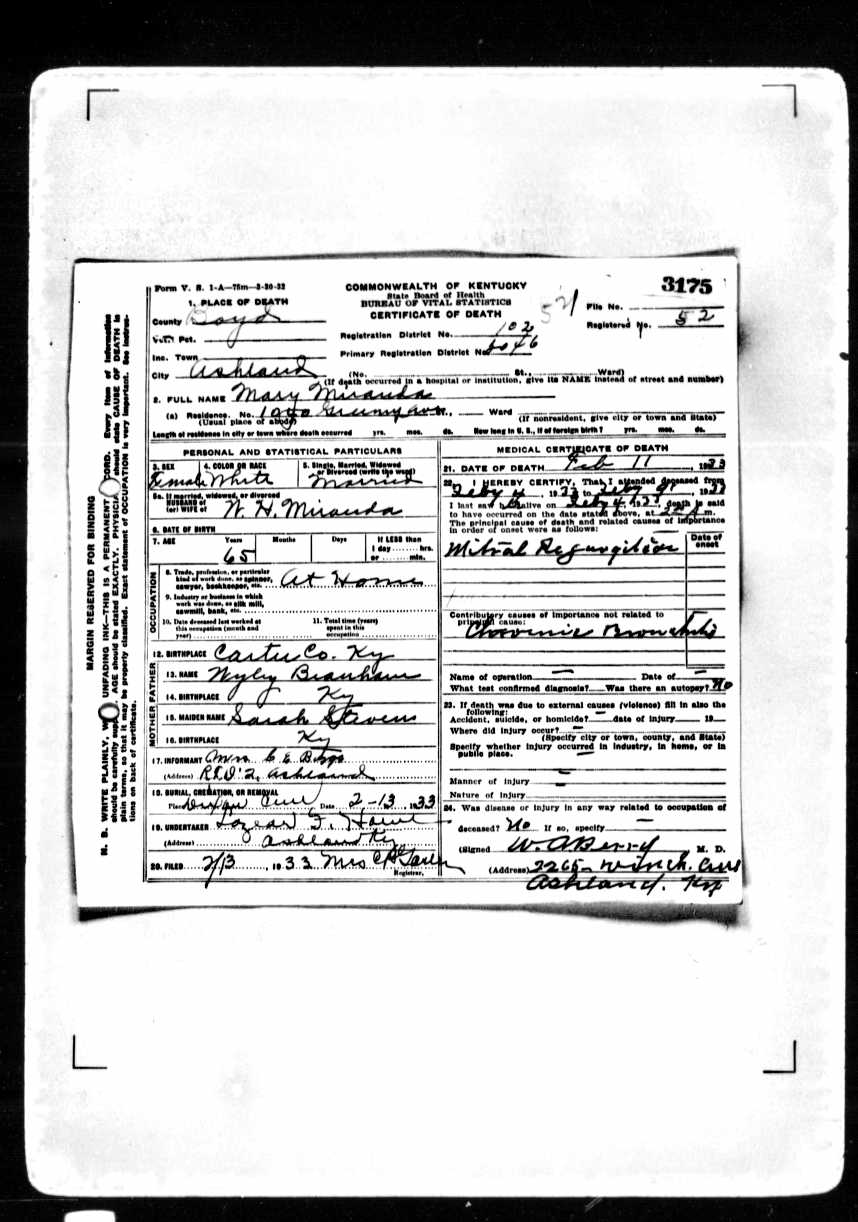 Form V. S. 1-A—75m—3-30-32
COMMONWEALTH OF KENTUCKY
State Board of Health
BUREAU OF VITAL STATISTICS
CERTIFICATE OF DEATH
3175
File No.
Registered No. 52
1. PLACE OF DEATH
County Boyd
Vot. Pct.
Inc. Town
City Ashland
Registration District No. 102
Primary Registration District No.
(No. St., Ward)
(If death occurred in a hospital or institution, give its NAME instead of street and number)
2. FULL NAME Mary Miranda
(a) Residence. No. St., Ward
(Usual place of abode) (If nonresident, give city or town and State)
Length of residence in city or town where death occurred yrs. mos. ds. How long in U. S., if of foreign birth? yrs. mos. ds.
PERSONAL AND STATISTICAL PARTICULARS
3. SEX Female
4. COLOR OR RACE White
5. Single, Married, Widowed or Divorced (write the word) Married
5a. If married, widowed, or divorced
HUSBAND of
(or) WIFE of W. H. Miranda
6. DATE OF BIRTH
7. AGE Years Months Days If LESS than
65 1 day ........ hrs.
or ........ min.
OCCUPATION
8. Trade, profession, or particular
kind of work done, as spinner,
sawyer, bookkeeper, etc. At Home
9. Industry or business in which
work was done, as silk mill,
sawmill, bank, etc.
10. Date deceased last worked at
this occupation (month and
year)
11. Total time (years)
spent in this
occupation
12. BIRTHPLACE Carter Co. Ky
FATHER
13. NAME Wyley Branham
14. BIRTHPLACE Ky
MOTHER
15. MAIDEN NAME Sarah Stevens
16. BIRTHPLACE Ky
17. INFORMANT Mrs. C. E.
(Address) R.F.D. 2, Ashland
18. BURIAL, CREMATION, OR REMOVAL
Place Date 2-13, 1933
19. UNDERTAKER
(Address) Ashland Ky
20. FILED 2/13, 1933 Mrs
Registrar.
MEDICAL CERTIFICATE OF DEATH
21. DATE OF DEATH Feb 11, 1933
22. I HEREBY CERTIFY, That I attended deceased from
Feby 4, 1933 to Feby
I last saw h alive on Feby death is said
to have occurred on the date stated above, at m.
The principal cause of death and related causes of importance
in order of onset were as follows:
Date of onset
Mitral Regurgitation
Contributory causes of importance not related to
principal cause:
Chronic Bronchitis
Name of operation — Date of —
What test confirmed diagnosis? Was there an autopsy? No
23. If death was due to external causes (violence) fill in also the
following:
Accident, suicide, or homicide? — date of injury 19
Where did injury occur? —
(Specify city or town, county, and State)
Specify whether injury occurred in industry, in home, or in
public place. —
Manner of injury —
Nature of injury —
24. Was disease or injury in any way related to occupation of
deceased? No If so, specify —
(Signed W. A. Berry M. D.
(Address) 2265- Winch. Ave
Ashland, Ky
MARGIN RESERVED FOR BINDING
N. B. WRITE PLAINLY, UNFADING INK—THIS IS A PERMANENT RECORD. Every item of information
should be carefully supplied. AGE should be stated EXACTLY. PHYSICIANS should state CAUSE OF DEATH in
plain terms, so that it may be properly classified. Exact statement of OCCUPATION is very important. See instruc-
tions on back of certificate.